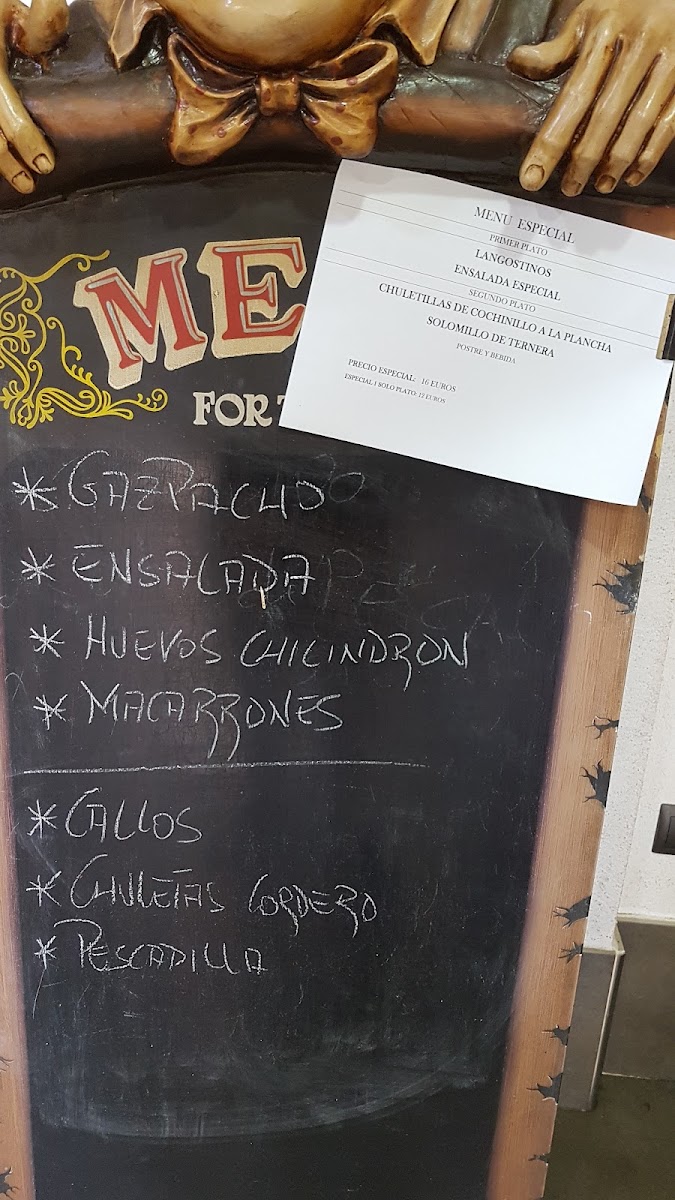 ME
FOR
MENU ESPECIAL
PRIMER PLATO
LANGOSTINOS
ENSALADA ESPECIAL
SEGUNDO PLATO
CHULETILLAS DE COCHINILLO A LA PLANCHA
SOLOMILLO DE TERNERA
POSTRE Y BEBIDA
PRECIO ESPECIAL: 16 EUROS
ESPECIAL 1 SOLO PLATO: 12 EUROS
* GAZPACHO
* ENSALADA
* HUEVOS CHILINDRON
* MACARRONES
* CALLOS
* CHULETAS CORDERO
* PESCADILLA